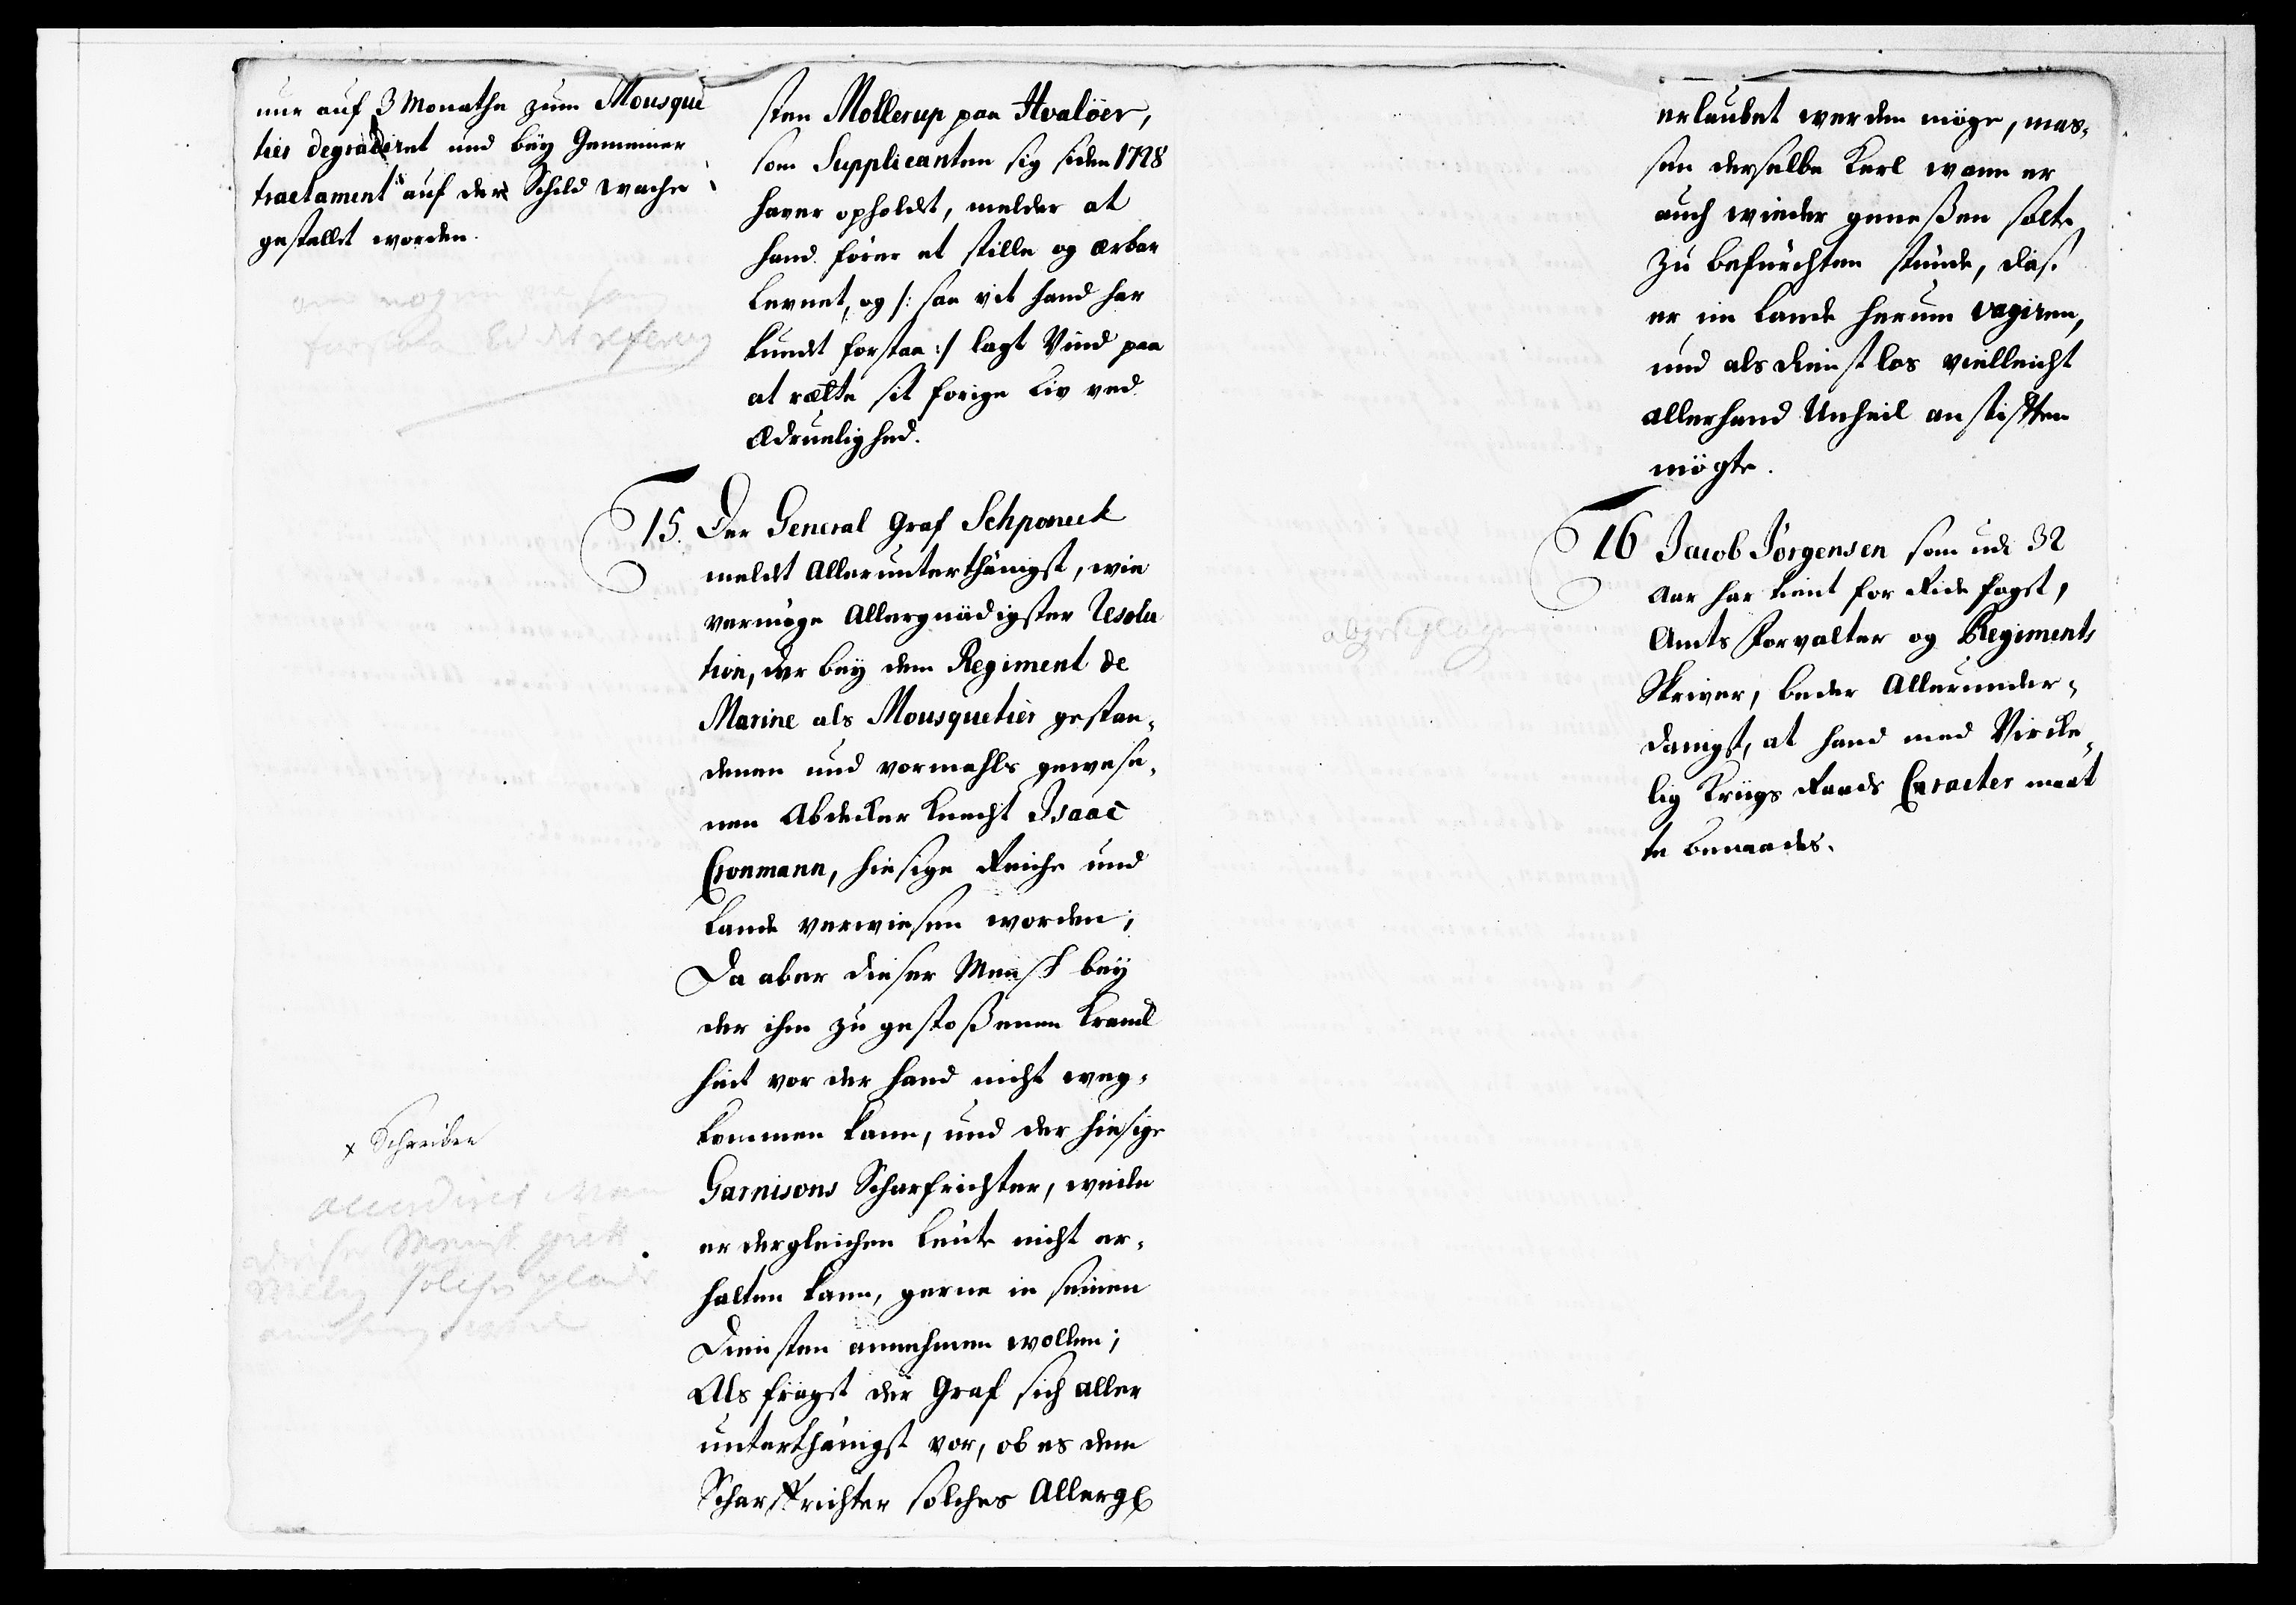 nur auf 3 Monathe zum Mousque
tier degradiret und beÿ Gemeiner
tractament auf der Schildwache
gestellt worden.
sten Mollerup paa Hvalöer,
som Supplicanten sig siden 1728
haver opholdt, melder at
hand förer et stille og ærbar
Levnet, og /: saa vit hand har
kundt forstaa :/ lagt Vind paa
at rætte sit forige Liv ved
Ædruelighed.
15. Der General Graf Schponeck
meldt Allerunterthänigst, wie
vermöge Allergnädigster Resolu
tion, der beÿ dem Regiment de
Marine als Mousquetier gestan-
denen und vormahls gewese-
nen Abdecker Knecht Isaac
Cronmann, hiesige Reiche und
Lande verwiesen worden;
Da aber dieser Mensch beÿ
der ihm zu gestoßenen Kranck
heit vor der Hand nicht weg-
kommen kann, und der hiesige
Garnisons Scharfrichter, weile
er dergleichen Leute nicht er-
halten kann, gerne in seinen
Diensten annehmen wollen;
Als frägt der Graf sich aller
unterthänigst vor, ob es dem
Scharffrichter solches Allerg
x Schreiben
accordiret
erlaubet werden möge, mas-
sen derselbe Kerl wann er
auch wieder geneßen solte
zu befürchten stünde, das
er im Lande herum vagiren,
und als dienstlos vielleicht
allerhand Unheil anstifften
mögte.
abgeschlagen
16 Jacob Jörgensen som udi 32
Aar har tient for Ride fogt,
Amts Forvalter og Regiments
Skriver, beder Allerunder-
danigst, at hand med Vircke-
lig Krigs Raads Caracter maat
te benaades.